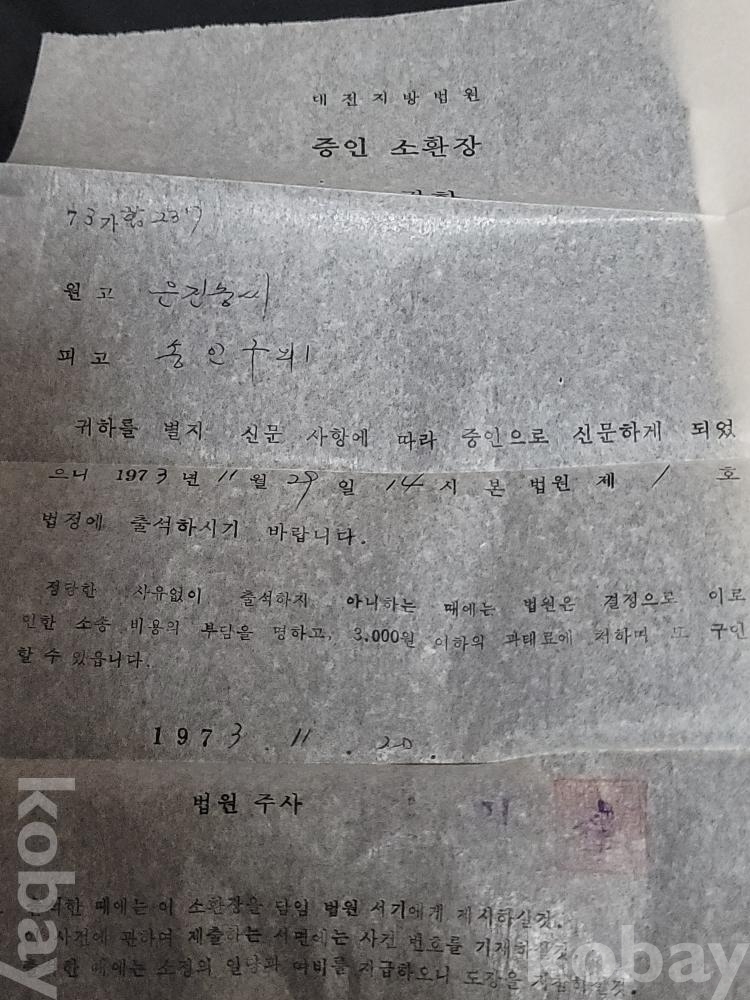 대전지방법원
증인 소환장
73가합237
원고 은진송씨
피고 송인구외1
귀하를 별지 신문 사항에 따라 증인으로 신문하게 되었
으니 1973년 11월 29일 14시 본 법원 제 1 호
법정에 출석하시기 바랍니다.
정당한 사유없이 출석하지 아니하는 때에는 법원은 결정으로 이로
인한 소송 비용의 부담을 명하고, 3.000원 이하의 과태료에 처하며 또 구인
할 수 있읍니다.
1973. 11. 20.
법원 주사
한 때에는 이 소환장을 담임 법원 서기에게 제시하실것.
사건에 관하여 제출하는 서면에는 사건 번호를 기재하실것.
한 때에는 소정의 일당과 여비를 지급하오니 도장을
kobay
kobay